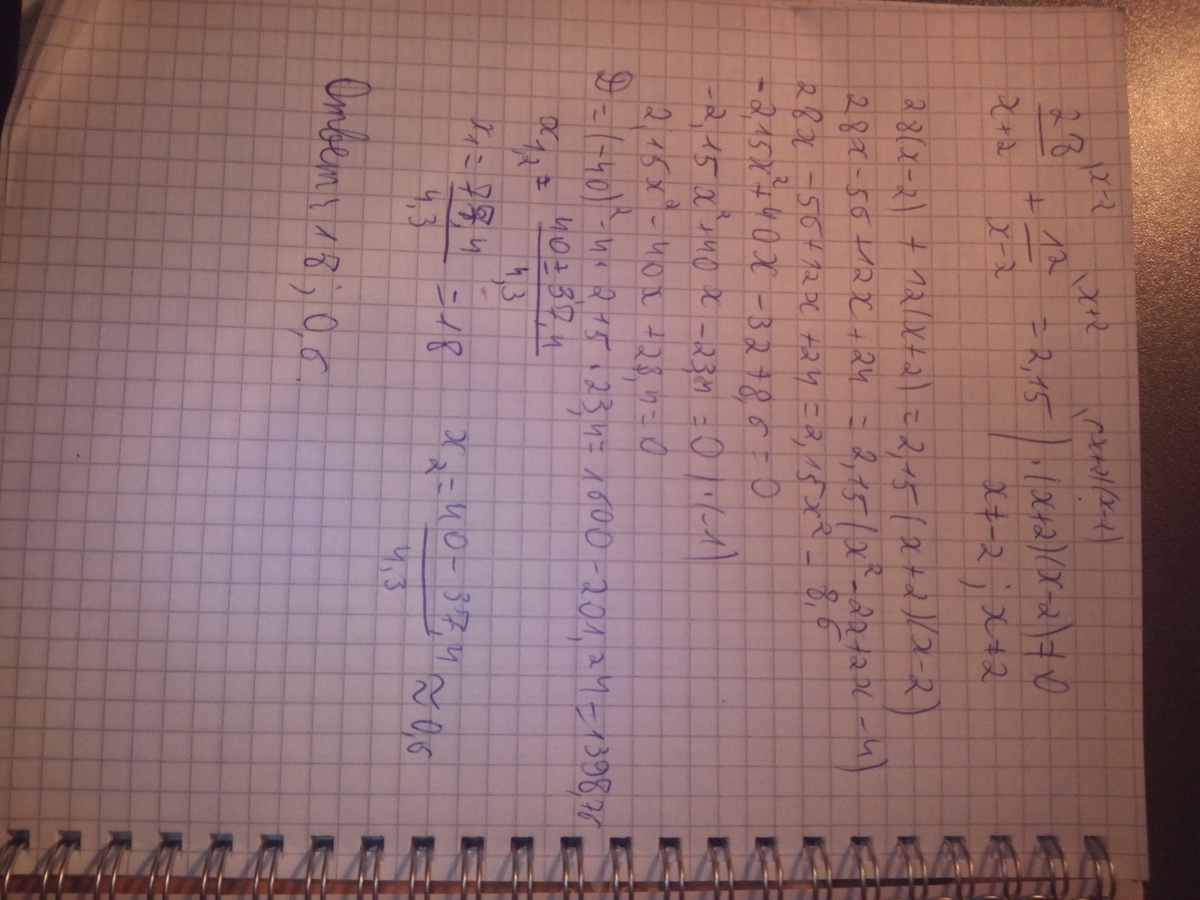 28\x-2 + 12\x+2 = 2,15 \(x+2)(x-2) | ·(x+2)(x-2)≠0
x+2 x-2 x≠-2; x≠2
28(x-2) + 12(x+2) = 2,15(x+2)(x-2)
28x-56+12x+24 = 2,15(x²-2x+2x-4)
28x-56+12x+24=2,15x²-8,6
-2,15x²+40x-32+8,6=0
-2,15x²+40x-23,4=0 |·(-1)
2,15x²-40x+23,4=0
D=(-40)²-4·2,15·23,4=1600-201,24=1398,76
x1,2= 40±37,4
4,3
x1= 77,4 = 18 x2= 40-37,4 ≈0,6
4,3 4,3
Ответ: 18; 0,6.